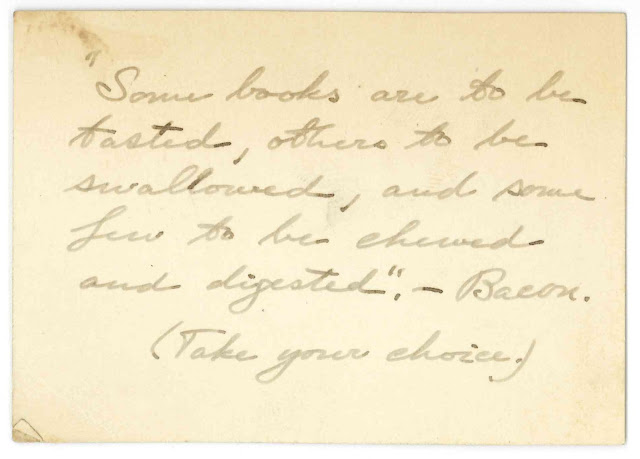 "Some books are to be
tasted, others to be
swallowed, and some
few to be chewed
and digested". - Bacon.
(Take your choice.)